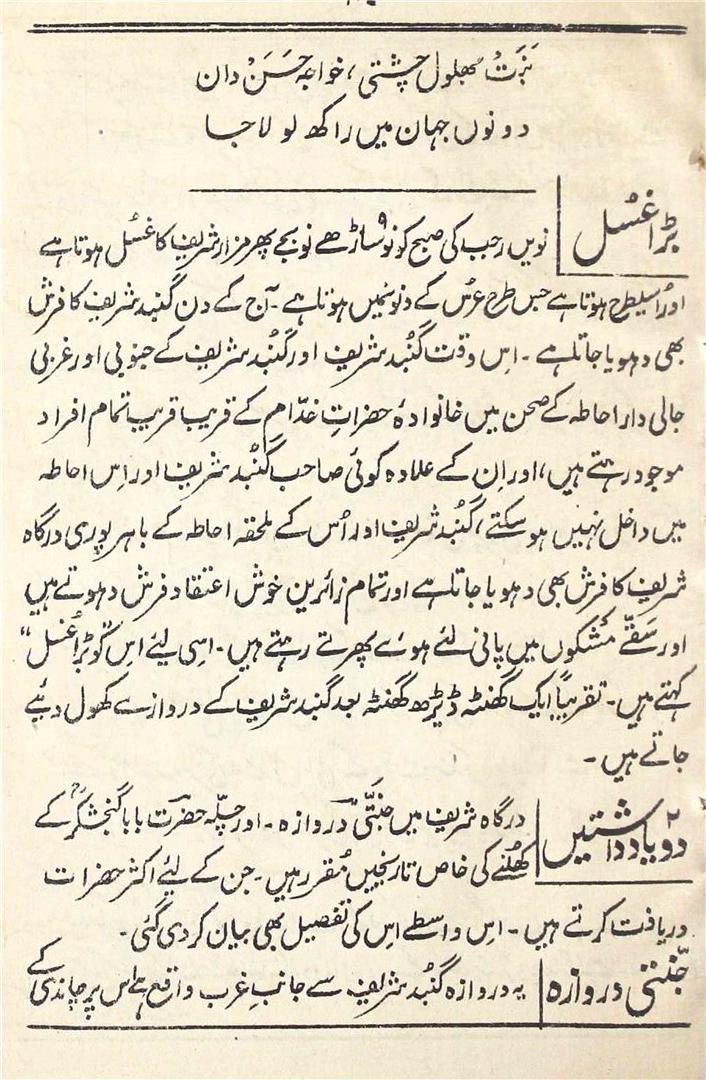 بَرَتْ بھلول چشتی، خواجہ حَسَنْ دان
دونوں جہان میں راکھ لو لاجا
بڑا غسل
نویں رجب کی صبح کو نو ۹ ساڑھے نو بجے پھر مزار شریف کا غسل ہوتا ہے
اور اسیطرح ہوتا ہے جس طرح عرس کے دنوں میں ہوتا ہے۔ آج کے دن گنبد شریف کا فرش
بھی دھویا جاتا ہے۔ اس وقت گنبد شریف اور گنبد شریف کے جنوبی اور غربی
جالی دار احاطہ کے صحن میں خانوادۂ حضراتِ خدّام کے قریب قریب تمام افراد
موجود رہتے ہیں، اور اِن کے علاوہ کوئی صاحب گنبد شریف اور اِس احاطہ
میں داخل نہیں ہو سکتے، گنبد شریف اور اُس کے ملحقہ احاطہ کے باہر پوری درگاہ
شریف کا فرش بھی دھویا جاتا ہے اور تمام زائرین خوش اعتقاد فرش دھوتے ہیں
اور سَقّے مشکوں میں پانی لئے ہوئے پھرتے رہتے ہیں۔ اسی لیئے اس کو "بڑا غسل"
کہتے ہیں۔ تقریباً ایک گھنٹہ ڈیڑھ گھنٹہ بعد گنبد شریف کے دروازے کھول دیئے
جاتے ہیں۔
دو ۲ یادداشتیں
درگاہ شریف میں جنّتی دروازہ۔ اور چلّہ حضرت بابا گنجشکرؒ کے
کھلنے کی خاص تاریخیں مقرر ہیں۔ جن کے لیئے اکثر حضرات
دریافت کرتے ہیں۔ اس واسطے اس کی تفصیل بھی بیان کر دی گئی۔
جنّتی دروازہ
یہ دروازہ گنبد شریف سے جانب غرب واقع ہے اس پر چاندی کے